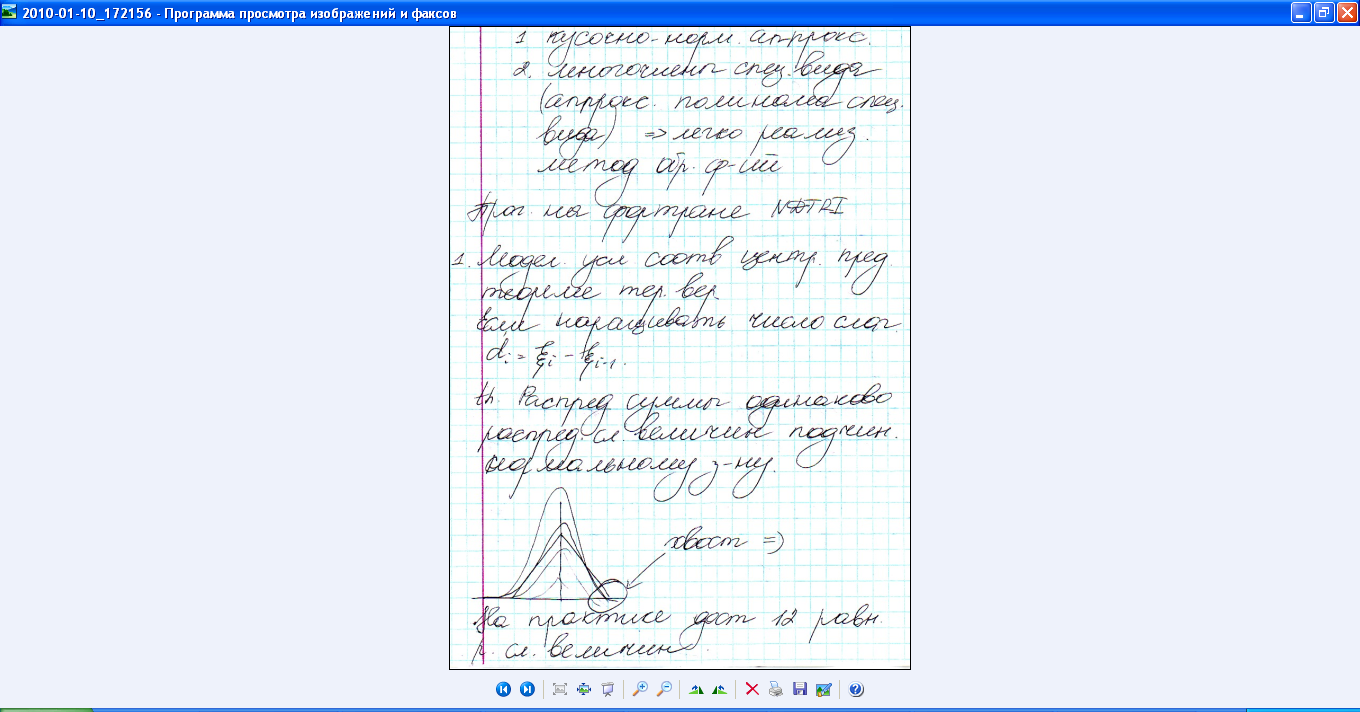 2010-01-10_172156 - Программа просмотра изображений и факсов
1 кусочно-норм. аппрокс.
2. многочлены спец. вида
(аппрокс. полинома спец.
вида) => легко реализ.
метод обр. ф-ий
Прог. на фортране NDTRI
1. Модел. усл соотв центр. пред.
теореме тер. вер.
Если наращивать число слаг.
di = ξi - ξi-1.
th. Распред суммы одинаково
распред. сл. величин подчин.
нормальному з-ну.
хвост =)
На практике дост 12 равн.
р. сл. величин.